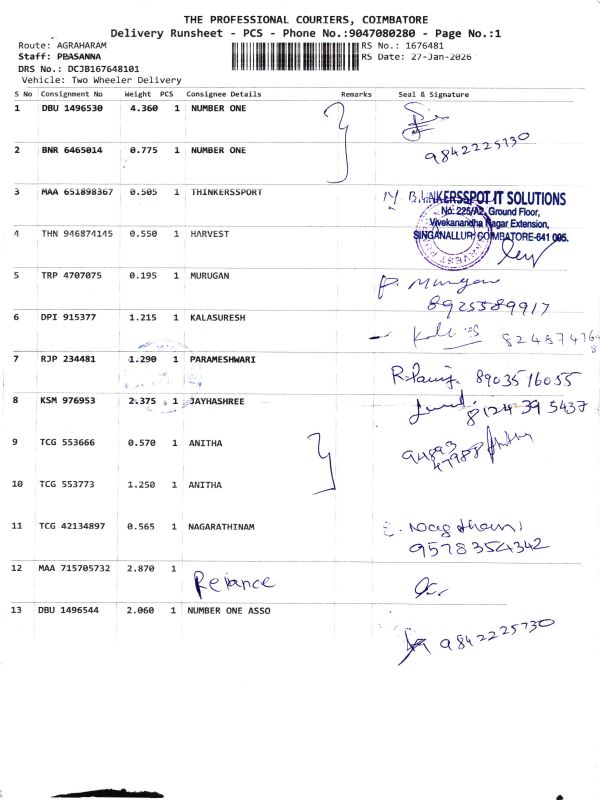 THE PROFESSIONAL COURIERS, COIMBATORE
Delivery Runsheet - PCS - Phone No.:9047080280 - Page No.:1
Route: AGRAHARAM
RS No.: 1676481
Staff: PBASANNA
RS Date: 27-Jan-2026
DRS No.: DCJB167648101
Vehicle: Two Wheeler Delivery
S No Consignment No Weight PCS Consignee Details Remarks Seal & Signature
1 DBU 1496530 4.360 1 NUMBER ONE
9842225730
2 BNR 6465014 0.775 1 NUMBER ONE
3 MAA 651898367 0.505 1 THINKERSSPORT
KERSSPOT IT SOLUTIONS
No: 225/A2, Ground Floor,
Vivekanandha Nagar Extension,
4 THN 946874145 0.550 1 HARVEST
SINGANALLUR, COIMBATORE-641 005.
5 TRP 4707075 0.195 1 MURUGAN
P. Murugan
8925589917
6 DPI 915377 1.215 1 KALASURESH
7 RJP 234481 1.290 1 PARAMESHWARI
8903516055
8 KSM 976953 2.375 1 JAYHASHREE
8124395437
9 TCG 553666 0.570 1 ANITHA
94893
47988
10 TCG 553773 1.250 1 ANITHA
11 TCG 42134897 0.565 1 NAGARATHINAM
9578354342
12 MAA 715705732 2.870 1
Reliance
13 DBU 1496544 2.060 1 NUMBER ONE ASSO
9842225730